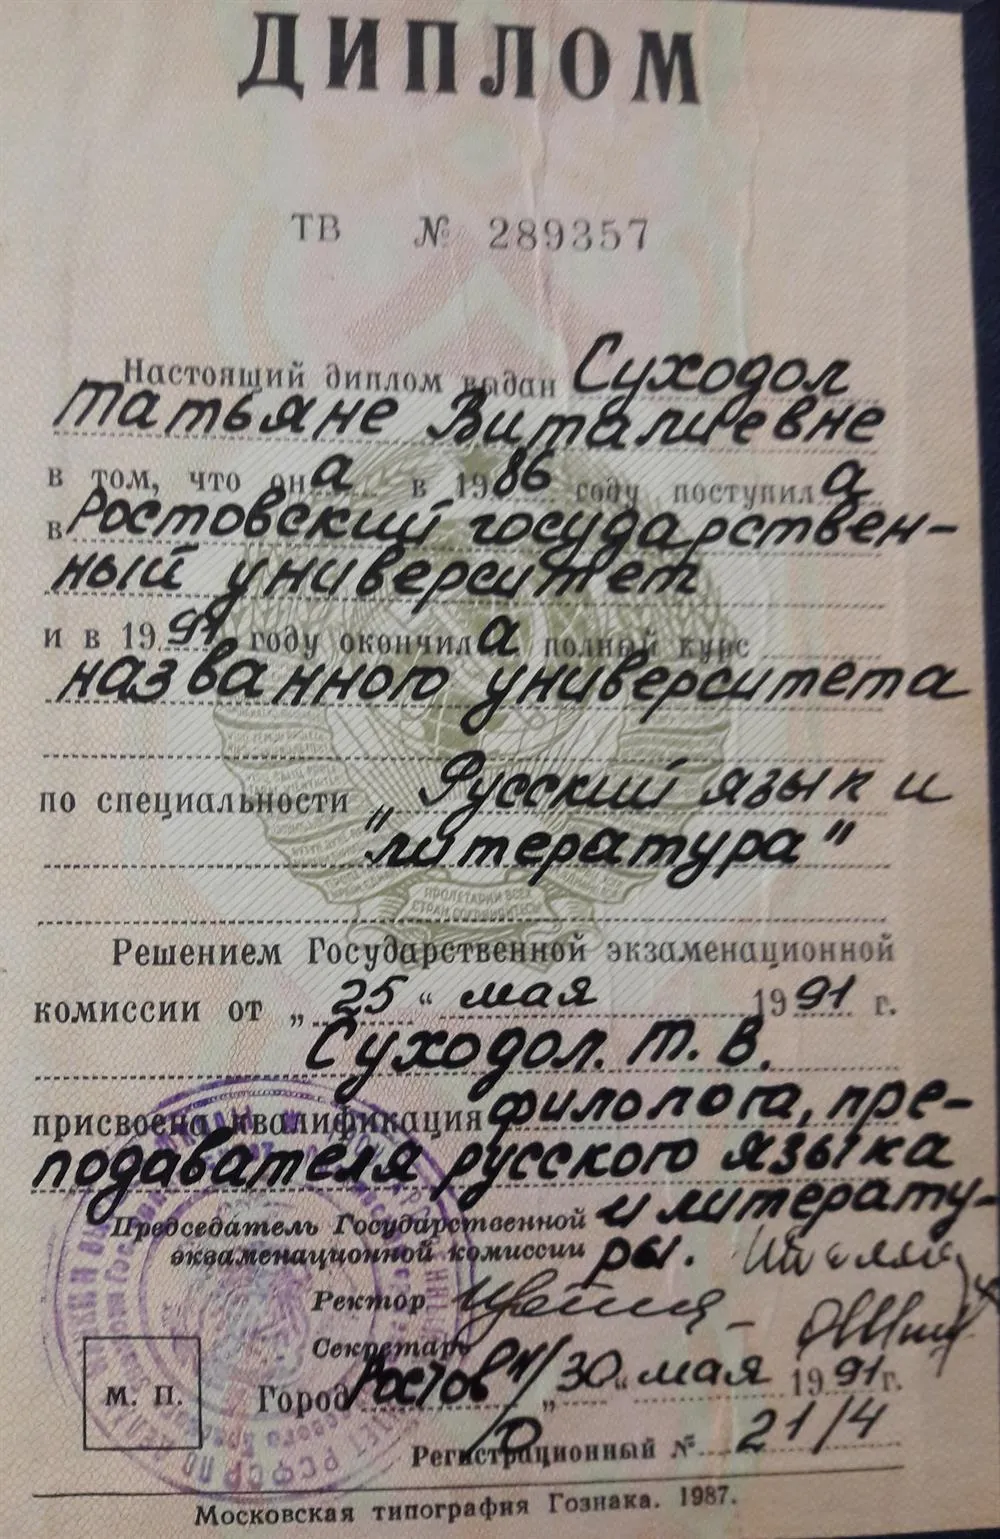 ДИПЛОМ
ТВ № 289357
Настоящий диплом выдан Суходол
Татьяне Виталиевне
в том, что она в 1986 году поступила
в Ростовский государствен-
ный университет
и в 1991 году окончила полный курс
названного университета
по специальности „Русский язык и
"литература"
ПРОЛЕТАРИИ ВСЕХ
СТРАН СОЕДИНЯЙТЕСЬ
Решением Государственной экзаменационной
комиссии от „25" мая 1991 г.
Суходол. Т. В.
присвоена квалификация филолога, пре-
подавателя русского языка
Председатель Государственной и литерату-
экзаменационной комиссии ры.
Ректор
Секретарь
М. П.
Город Ростов н/Д „30" мая 1991 г.
Регистрационный № 21/4
Московская типография Гознака. 1987.